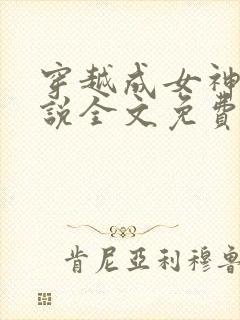 穿越成女神
說全文免費
肯尼亞利穆魯